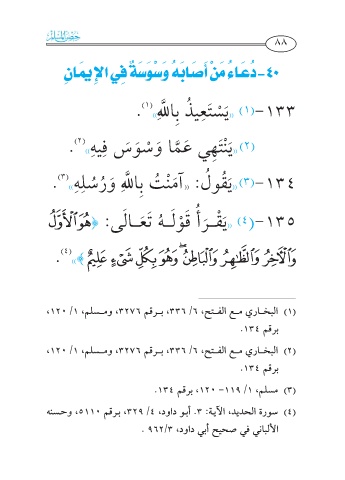 ٨٨
حصن المسلم
٤٠- دُعَاءُ مَنْ أَصَابَهُ وَسْوَسَةٌ فِي الإِيمَانِ
١٣٣- (١) «يَسْتَعِيذُ بِاللَّهِ»(١).
(٢) «يَنْتَهِي عَمَّا وَسْوَسَ فِيهِ»(٢).
١٣٤- (٣) «يَقُولُ: «آمَنْتُ بِاللَّهِ وَرُسُلِهِ»(٣).
١٣٥- (٤) «يَقْرَأُ قَوْلَهُ تَعَالَى: ﴿هُوَ ٱلْأَوَّلُ
وَٱلْآخِرُ وَٱلظَّاهِرُ وَٱلْبَاطِنُ ۖ وَهُوَ بِكُلِّ شَيْءٍ عَلِيمٌ﴾»(٤).
(١) البخاري مع الفتح، ٦/ ٣٣٦، برقم ٣٢٧٦، ومسلم، ١/ ١٢٠،
برقم ١٣٤.
(٢) البخاري مع الفتح، ٦/ ٣٣٦، برقم ٣٢٧٦، ومسلم، ١/ ١٢٠،
برقم ١٣٤.
(٣) مسلم، ١/ ١١٩- ١٢٠، برقم ١٣٤.
(٤) سورة الحديد، الآية: ٣. أبو داود، ٤/ ٣٢٩، برقم ٥١١٠، وحسنه
الألباني في صحيح أبي داود، ٣/ ٩٦٢.